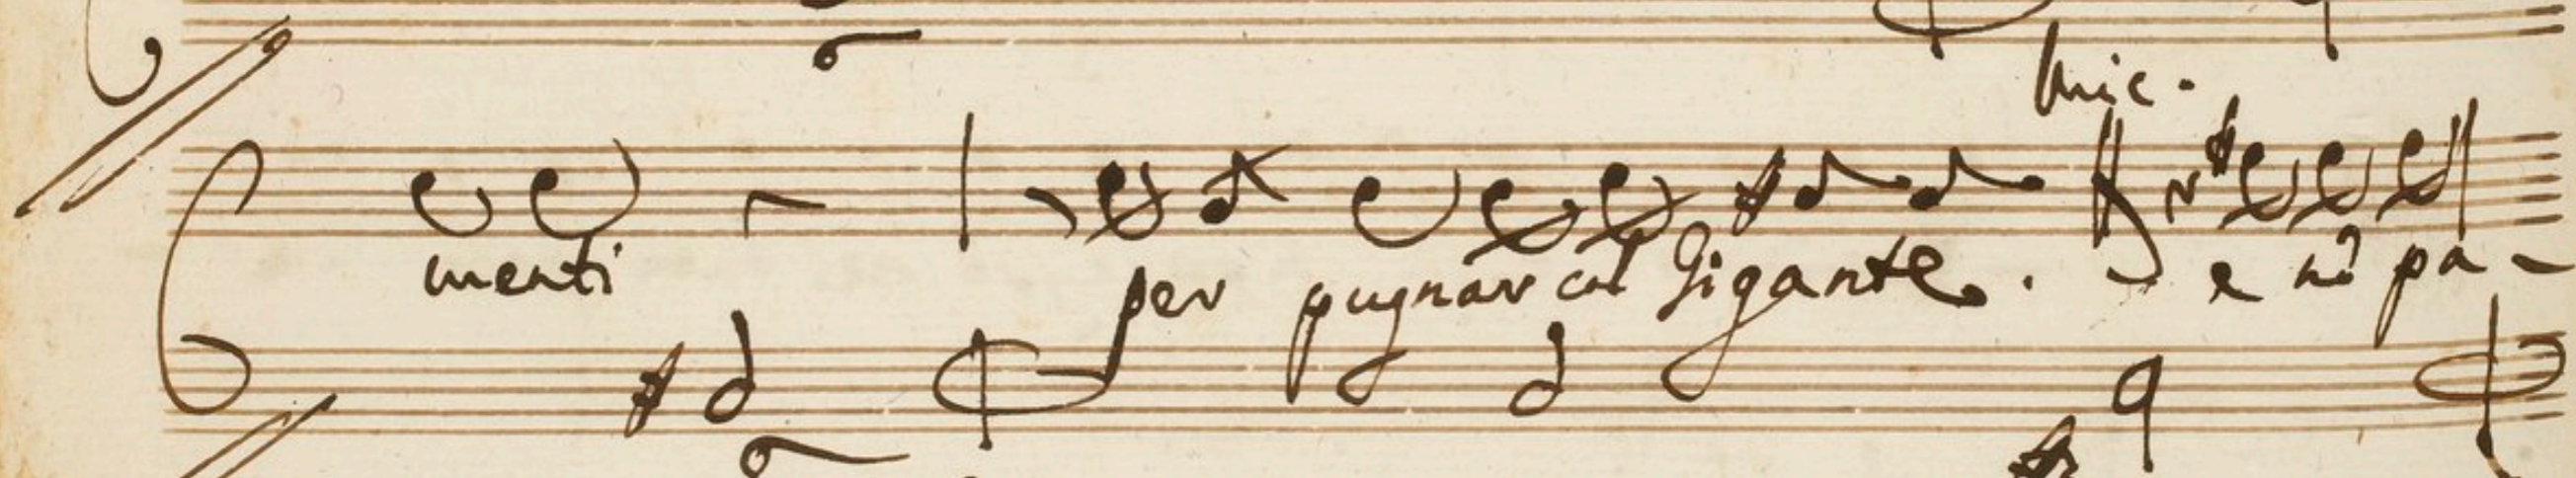 Mic.
menti per pugnar col Gigante. e nõ pa-